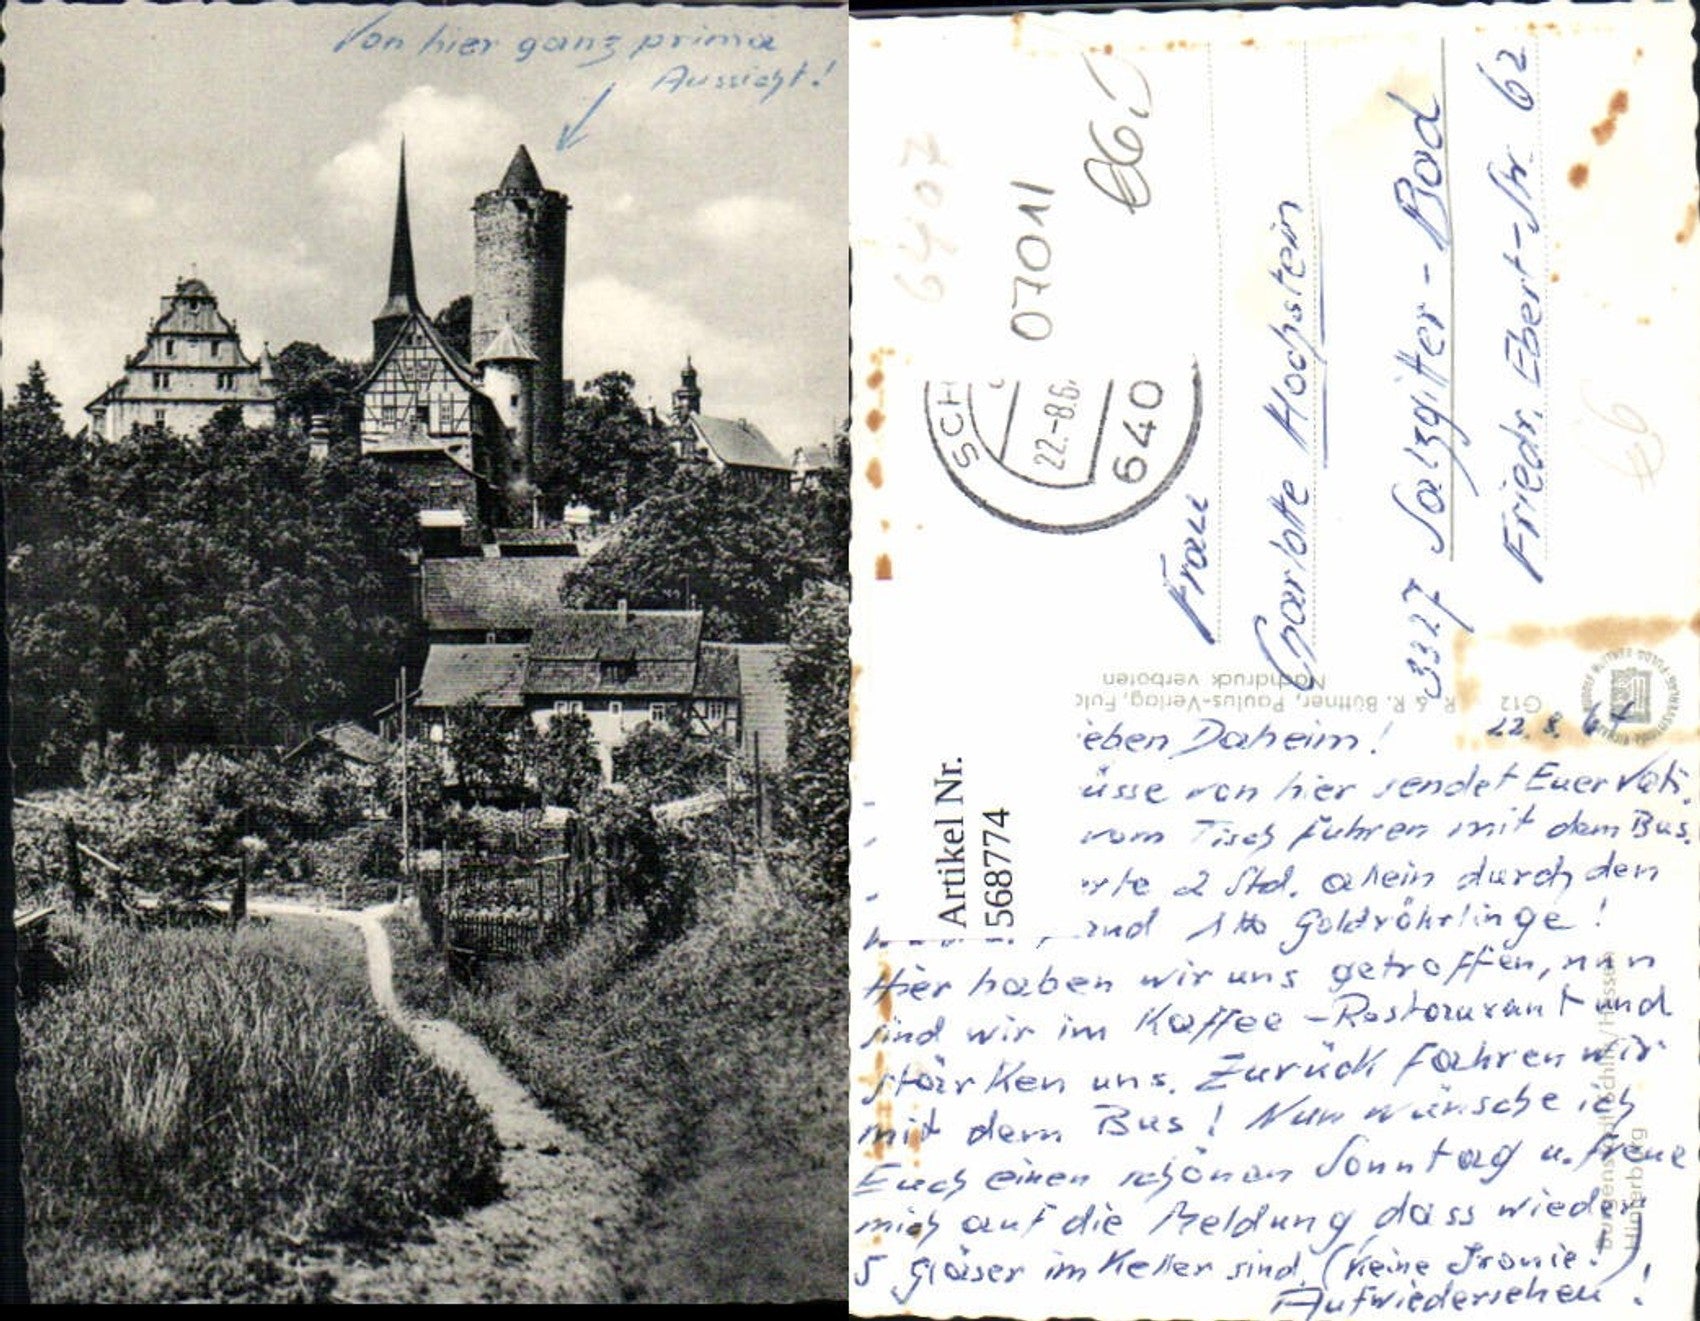 Von hier ganz prima
Aussicht!
6407
07011
SCH
22.-8.6.
640
Frau
Charlotte Hochstein
3327 Salzgitter-Bad
Friedr. Ebert-Str. 62
R & R. Büttner, Paulus-Verlag, Fulda
Nachdruck verboten
G12
Artikel Nr.
568774
22.8.64
ieben Daheim!
üsse von hier sendet Euer Vati.
vom Tisch fuhren mit dem Bus.
rte 2 Std. allein durch den
und 1 Goldröhrlinge!
Hier haben wir uns getroffen, nun
sind wir im Kaffee-Restaurant und
stärken uns. Zurück fahren wir
mit dem Bus! Nun wünsche ich
Euch einen schönen Sonntag u. freue
mich auf die Meldung, dass wieder
5 Gläser im Keller sind. (Keine Ironie!)
Aufwiedersehen!